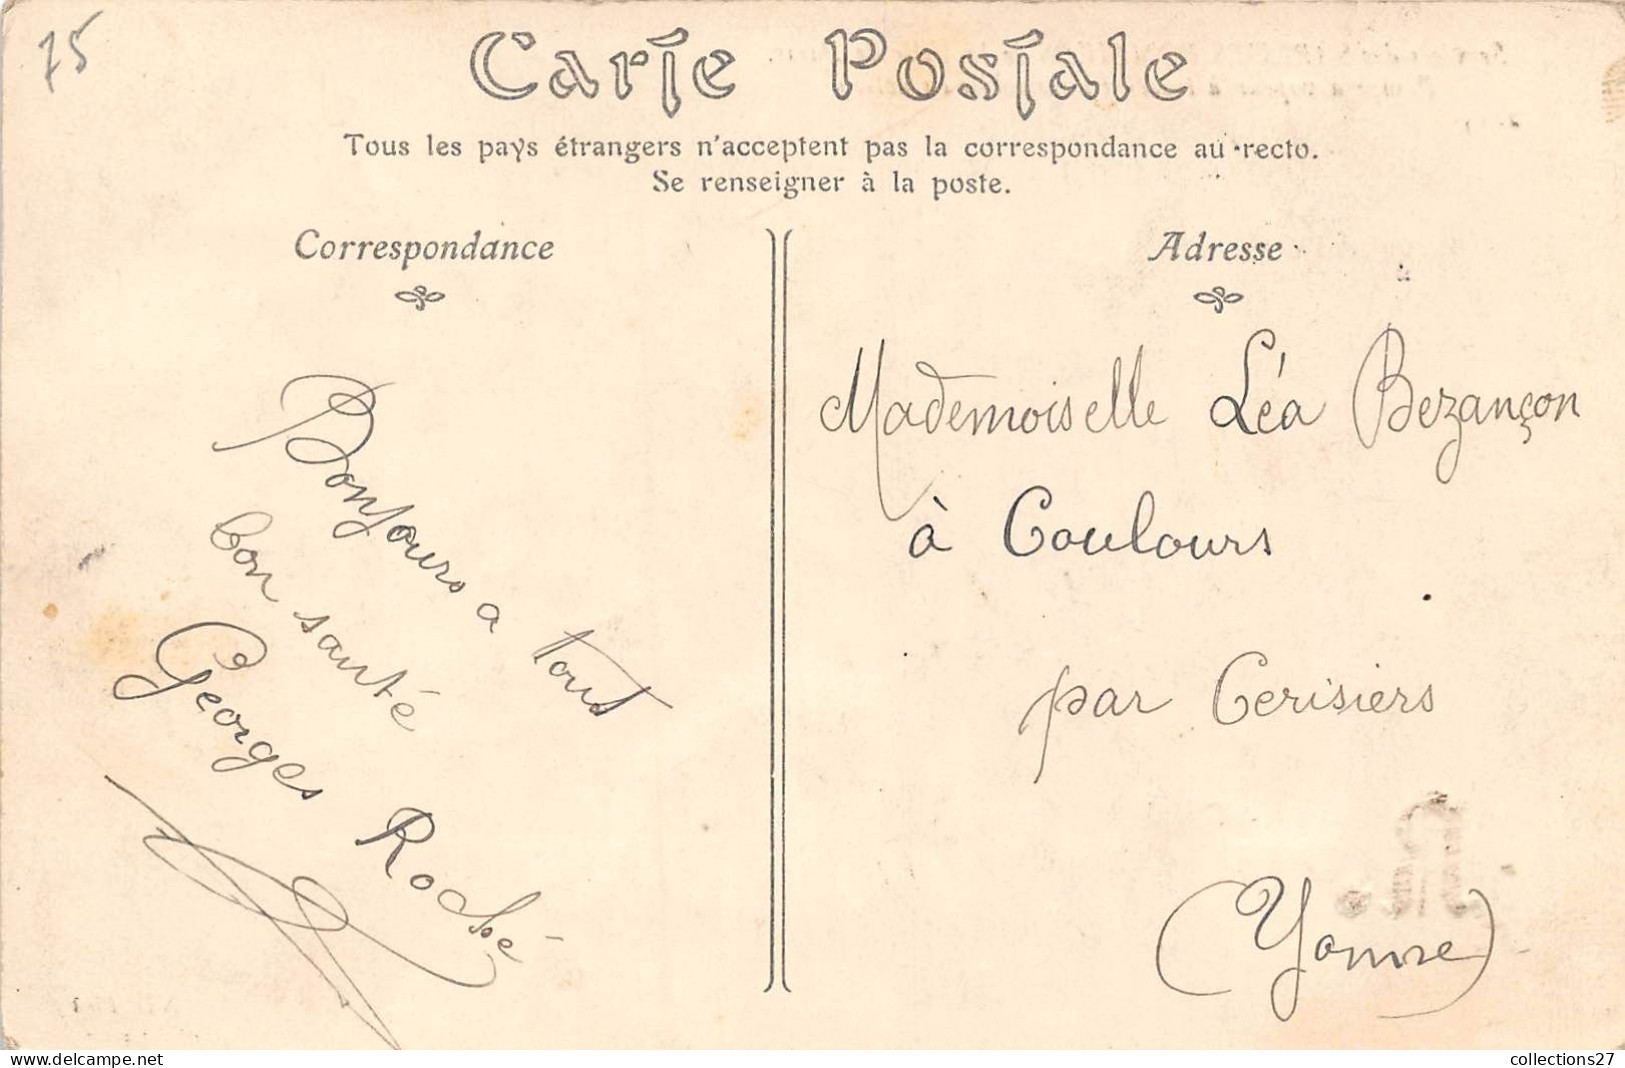 75
Carte Postale
Tous les pays étrangers n'acceptent pas la correspondance au recto.
Se renseigner à la poste.
Correspondance
Bonjours a tous
bon santé
Georges Roché
Adresse
Mademoiselle Léa Bezançon
à Coulours
par Cerisiers
(Yonne)
collections27
www.delcampe.net